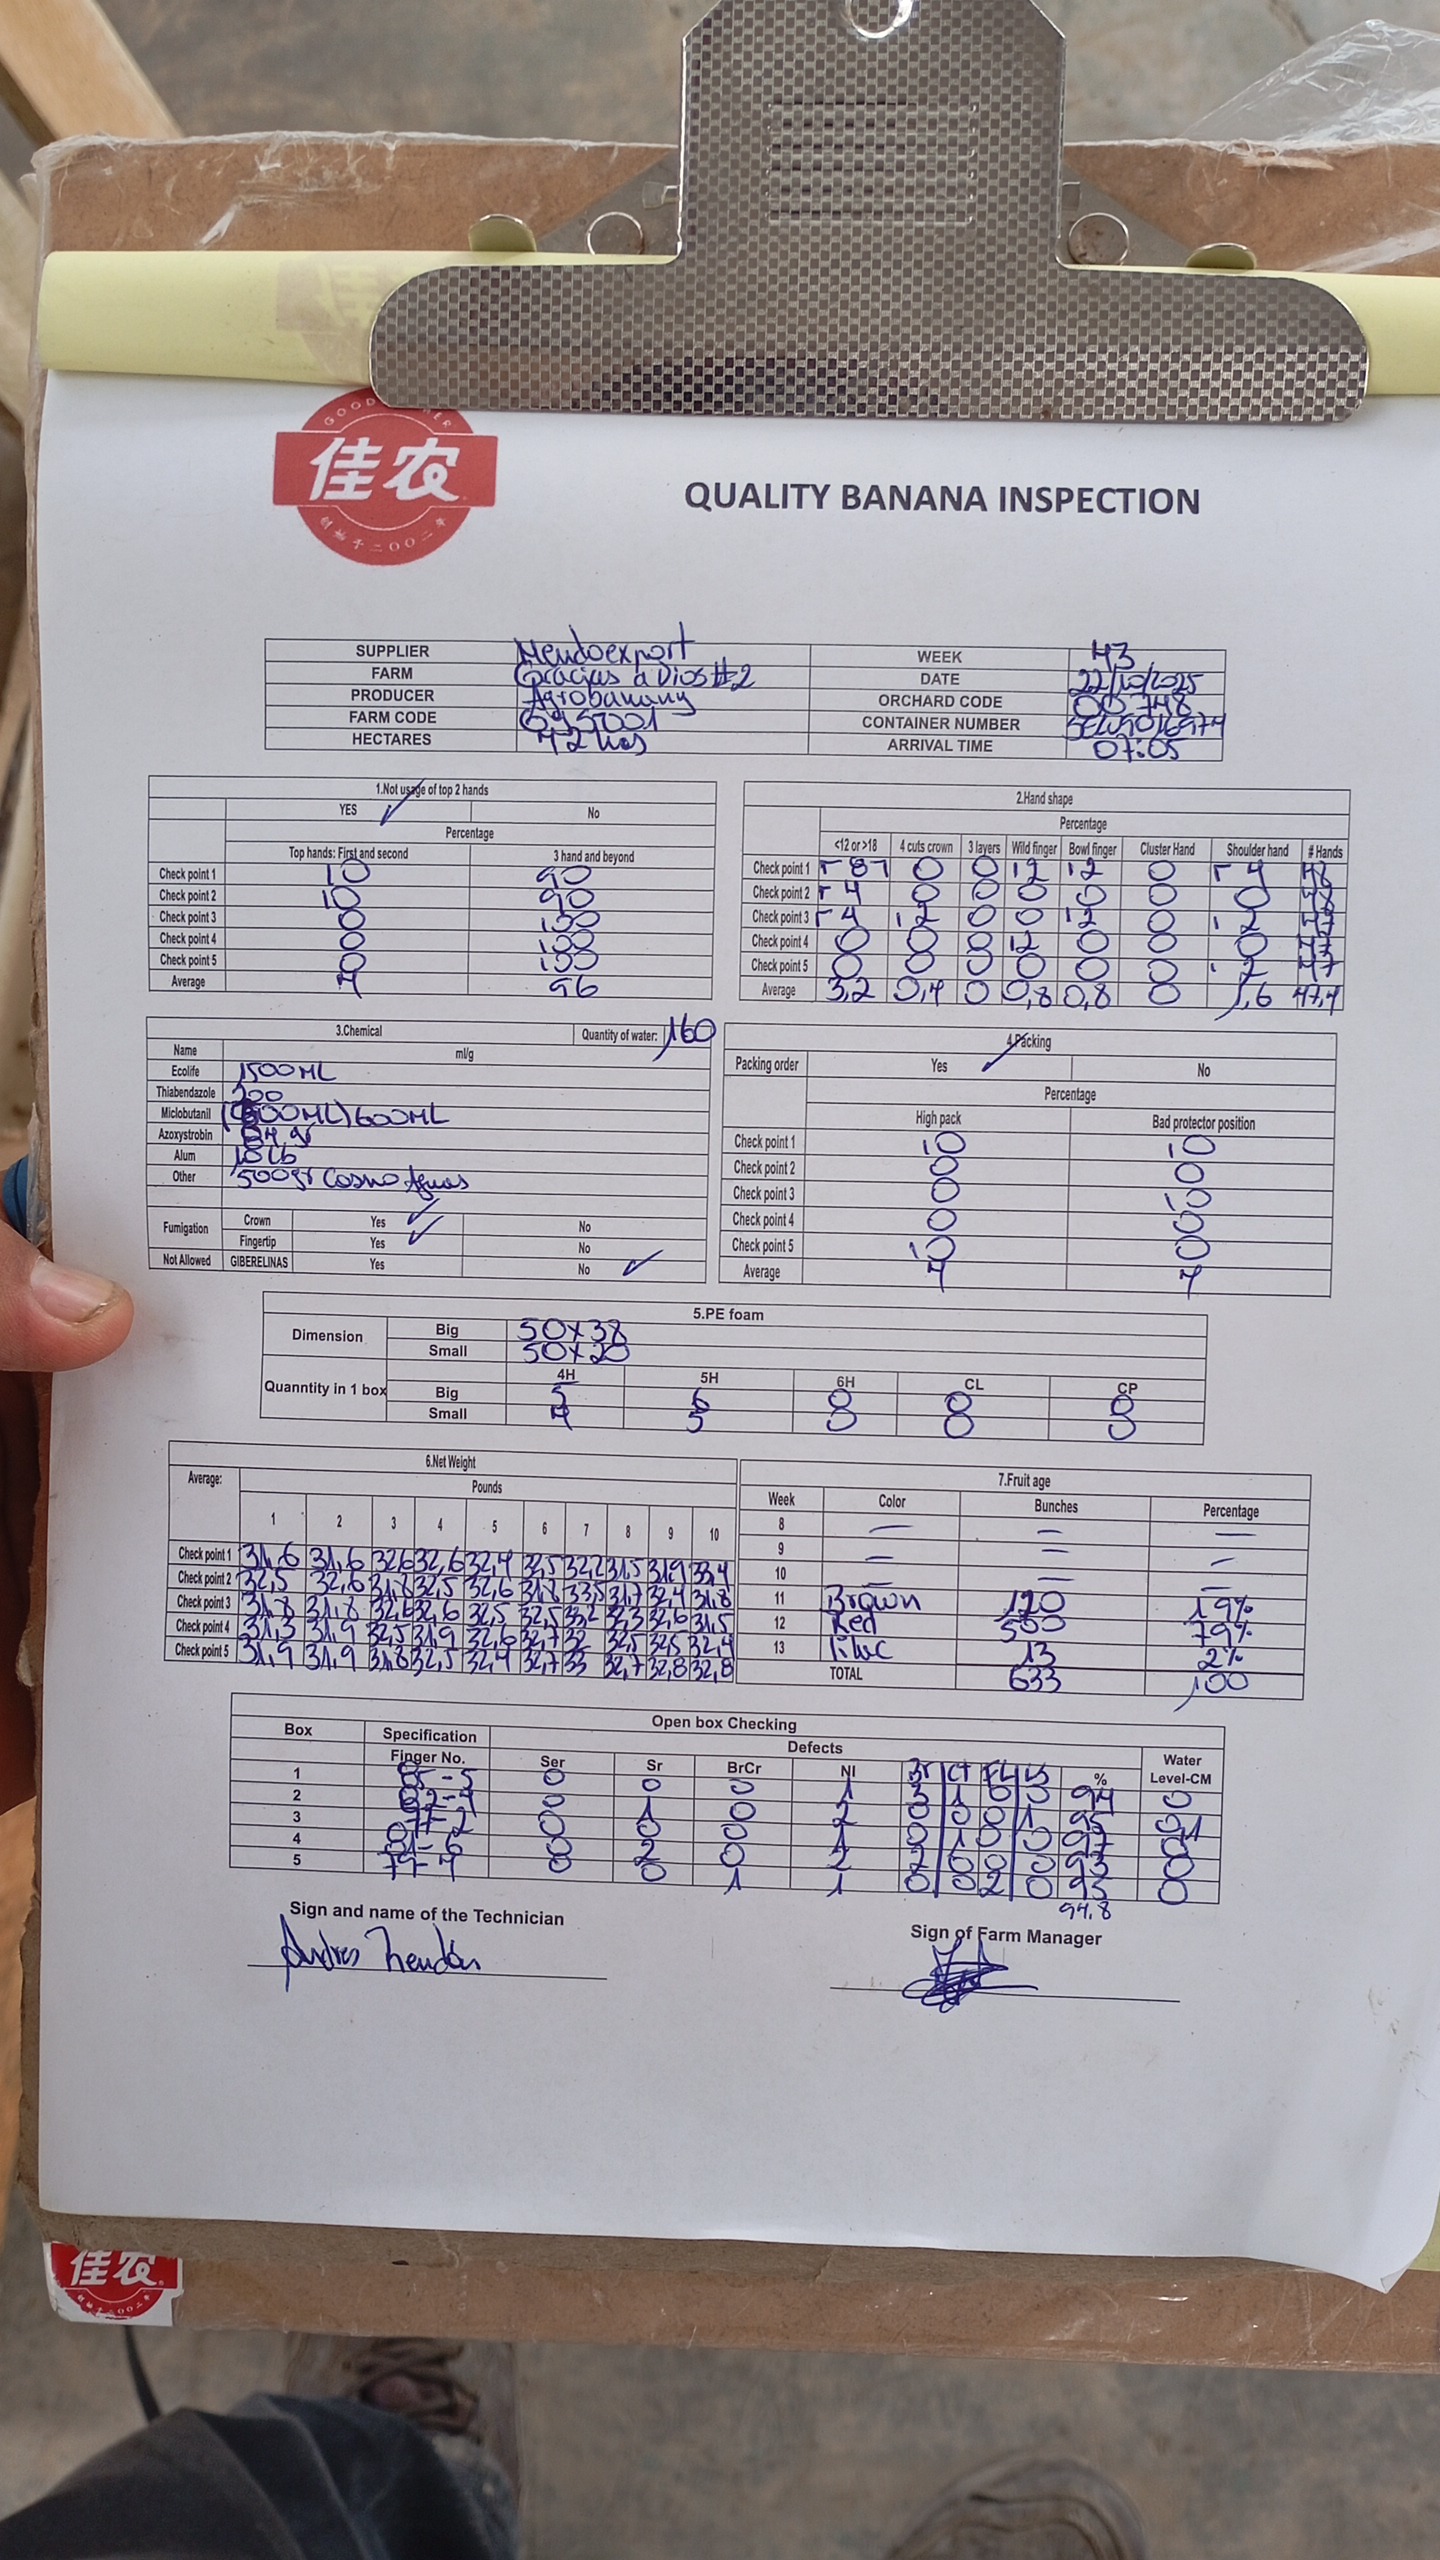 GOOD
佳农
创始于二〇〇二年
QUALITY BANANA INSPECTION
SUPPLIER Mendoexport WEEK 43
FARM Gracias a Dios #2 DATE 22/10/2025
PRODUCER Agrobanany ORCHARD CODE 00748
FARM CODE CONTAINER NUMBER
HECTARES 42 has ARRIVAL TIME 07:05
1.Not usage of top 2 hands
YES ✓ No
Percentage
Top hands: First and second 3 hand and beyond
Check point 1 10 90
Check point 2 10 90
Check point 3 0 100
Check point 4 0 100
Check point 5 0 100
Average 4 96
2.Hand shape
Percentage
<12 or >18 4 cuts crown 3 layers Wild finger Bowl finger Cluster Hand Shoulder hand # Hands
Check point 1 0 0 12 12 0 4 48
Check point 2 4 0 0 0 0 0 0 48
Check point 3 4 2 0 0 12 0 2 47
Check point 4 0 0 0 12 0 0 0 47
Check point 5 0 0 0 0 0 0 2 47
Average 3,2 0,4 0 0,8 0,8 0 1,6 47,4
3.Chemical Quantity of water: 160
Name ml/g
Ecolife 1500ML
Thiabendazole
Miclobutanil 600ML
Azoxystrobin
Alum 10 Lb
Other 500gr Cosmo Aguas
Fumigation Crown Yes ✓ No
Fingertip Yes ✓ No
Not Allowed GIBERELINAS Yes No ✓
4.Packing
Packing order Yes ✓ No
Percentage
High pack Bad protector position
Check point 1 10 10
Check point 2 0 0
Check point 3 0 10
Check point 4 0 0
Check point 5 10 0
Average 4 4
5.PE foam
Dimension Big 50x38
Small 50x20
4H 5H 6H CL CP
Quanntity in 1 box Big 5 6 0 0 0
Small 4 5 0 0 0
6.Net Weight
Average: Pounds
1 2 3 4 5 6 7 8 9 10
Check point 1 31,6 31,6 32,6 32,6 32,4 32,5 32,2 31,5 31,9 33,4
Check point 2 32,5 32,6 31,8 32,5 32,6 31,8 33,5 31,7 32,4 31,8
Check point 3 31,8 31,8 32,6 32,6 32,5 32,5 33,2 32,3 32,6 31,5
Check point 4 31,3 31,9 32,5 31,9 32,6 32,7 32 32,5 32,5 32,4
Check point 5 31,9 31,9 31,8 32,5 32,4 32,7 33 32,7 32,8 32,8
7.Fruit age
Week Color Bunches Percentage
8 — — —
9 — — —
10 — — —
11 Brown 120 19%
12 Red 500 79%
13 lilac 13 2%
TOTAL 633 100
Open box Checking
Box Specification Defects Water
Finger No. Ser Sr BrCr NI Br CT FL LS % Level-CM
1 85-5 0 0 0 1 3 1 0 0 94 0
2 82-4 0 1 0 2 0 0 0 1 95
3 77-2 0 0 0 1 0 1 0 0 97 0
4 81-6 0 2 0 2 2 0 0 0 93 0
5 79-4 0 0 1 1 0 0 2 0 95 0
94,8
Sign and name of the Technician
Sign of Farm Manager
Andres
佳农